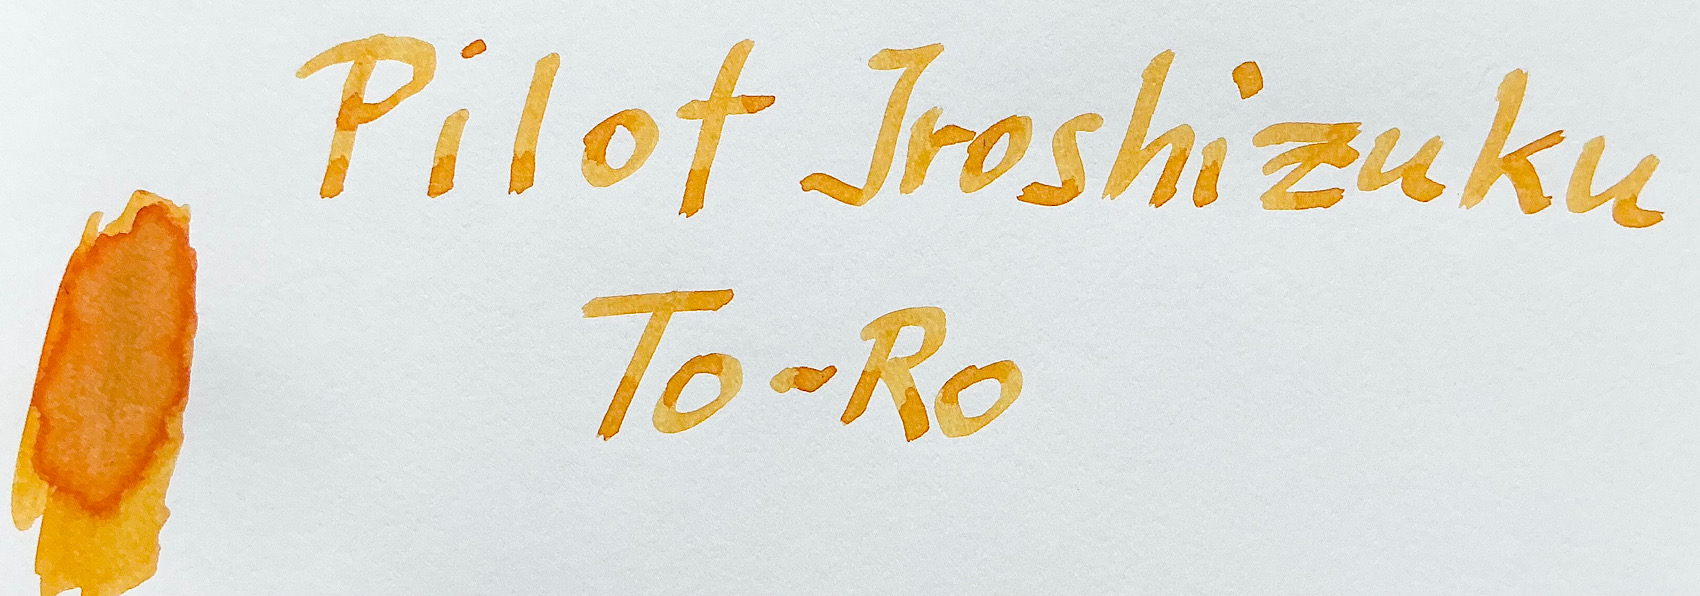 Pilot Iroshizuku
To-Ro